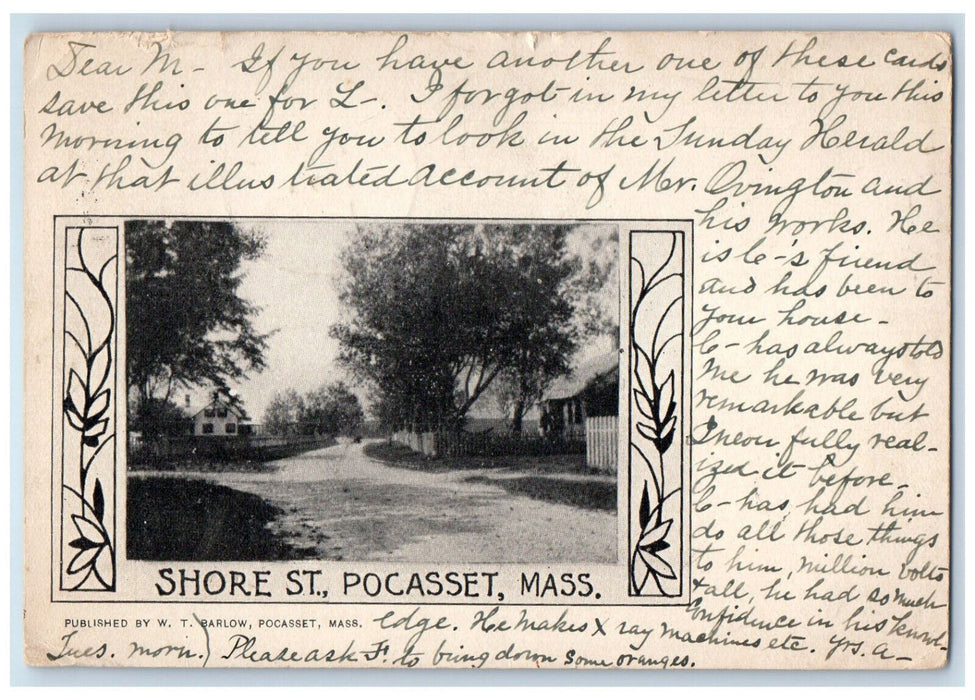 Dear M- If you have another one of these cards
save this one for L-. I forgot in my letter to you this
morning to tell you to look in the Sunday Herald
at that illustrated account of Mr. Ovington and
his works. He
is C-'s friend
and has been to
your house-
C- has always told
me he was very
remarkable but
I never fully real-
ized it before-
C- has had him
do all those things
to him, million volts
& all, he had so much
confidence in his knowl-
edge. He makes X ray machines etc. Yrs. A-
SHORE ST., POCASSET, MASS.
PUBLISHED BY W. T. BARLOW, POCASSET, MASS.
Tues. morn.) Please ask F. to bring down some oranges.